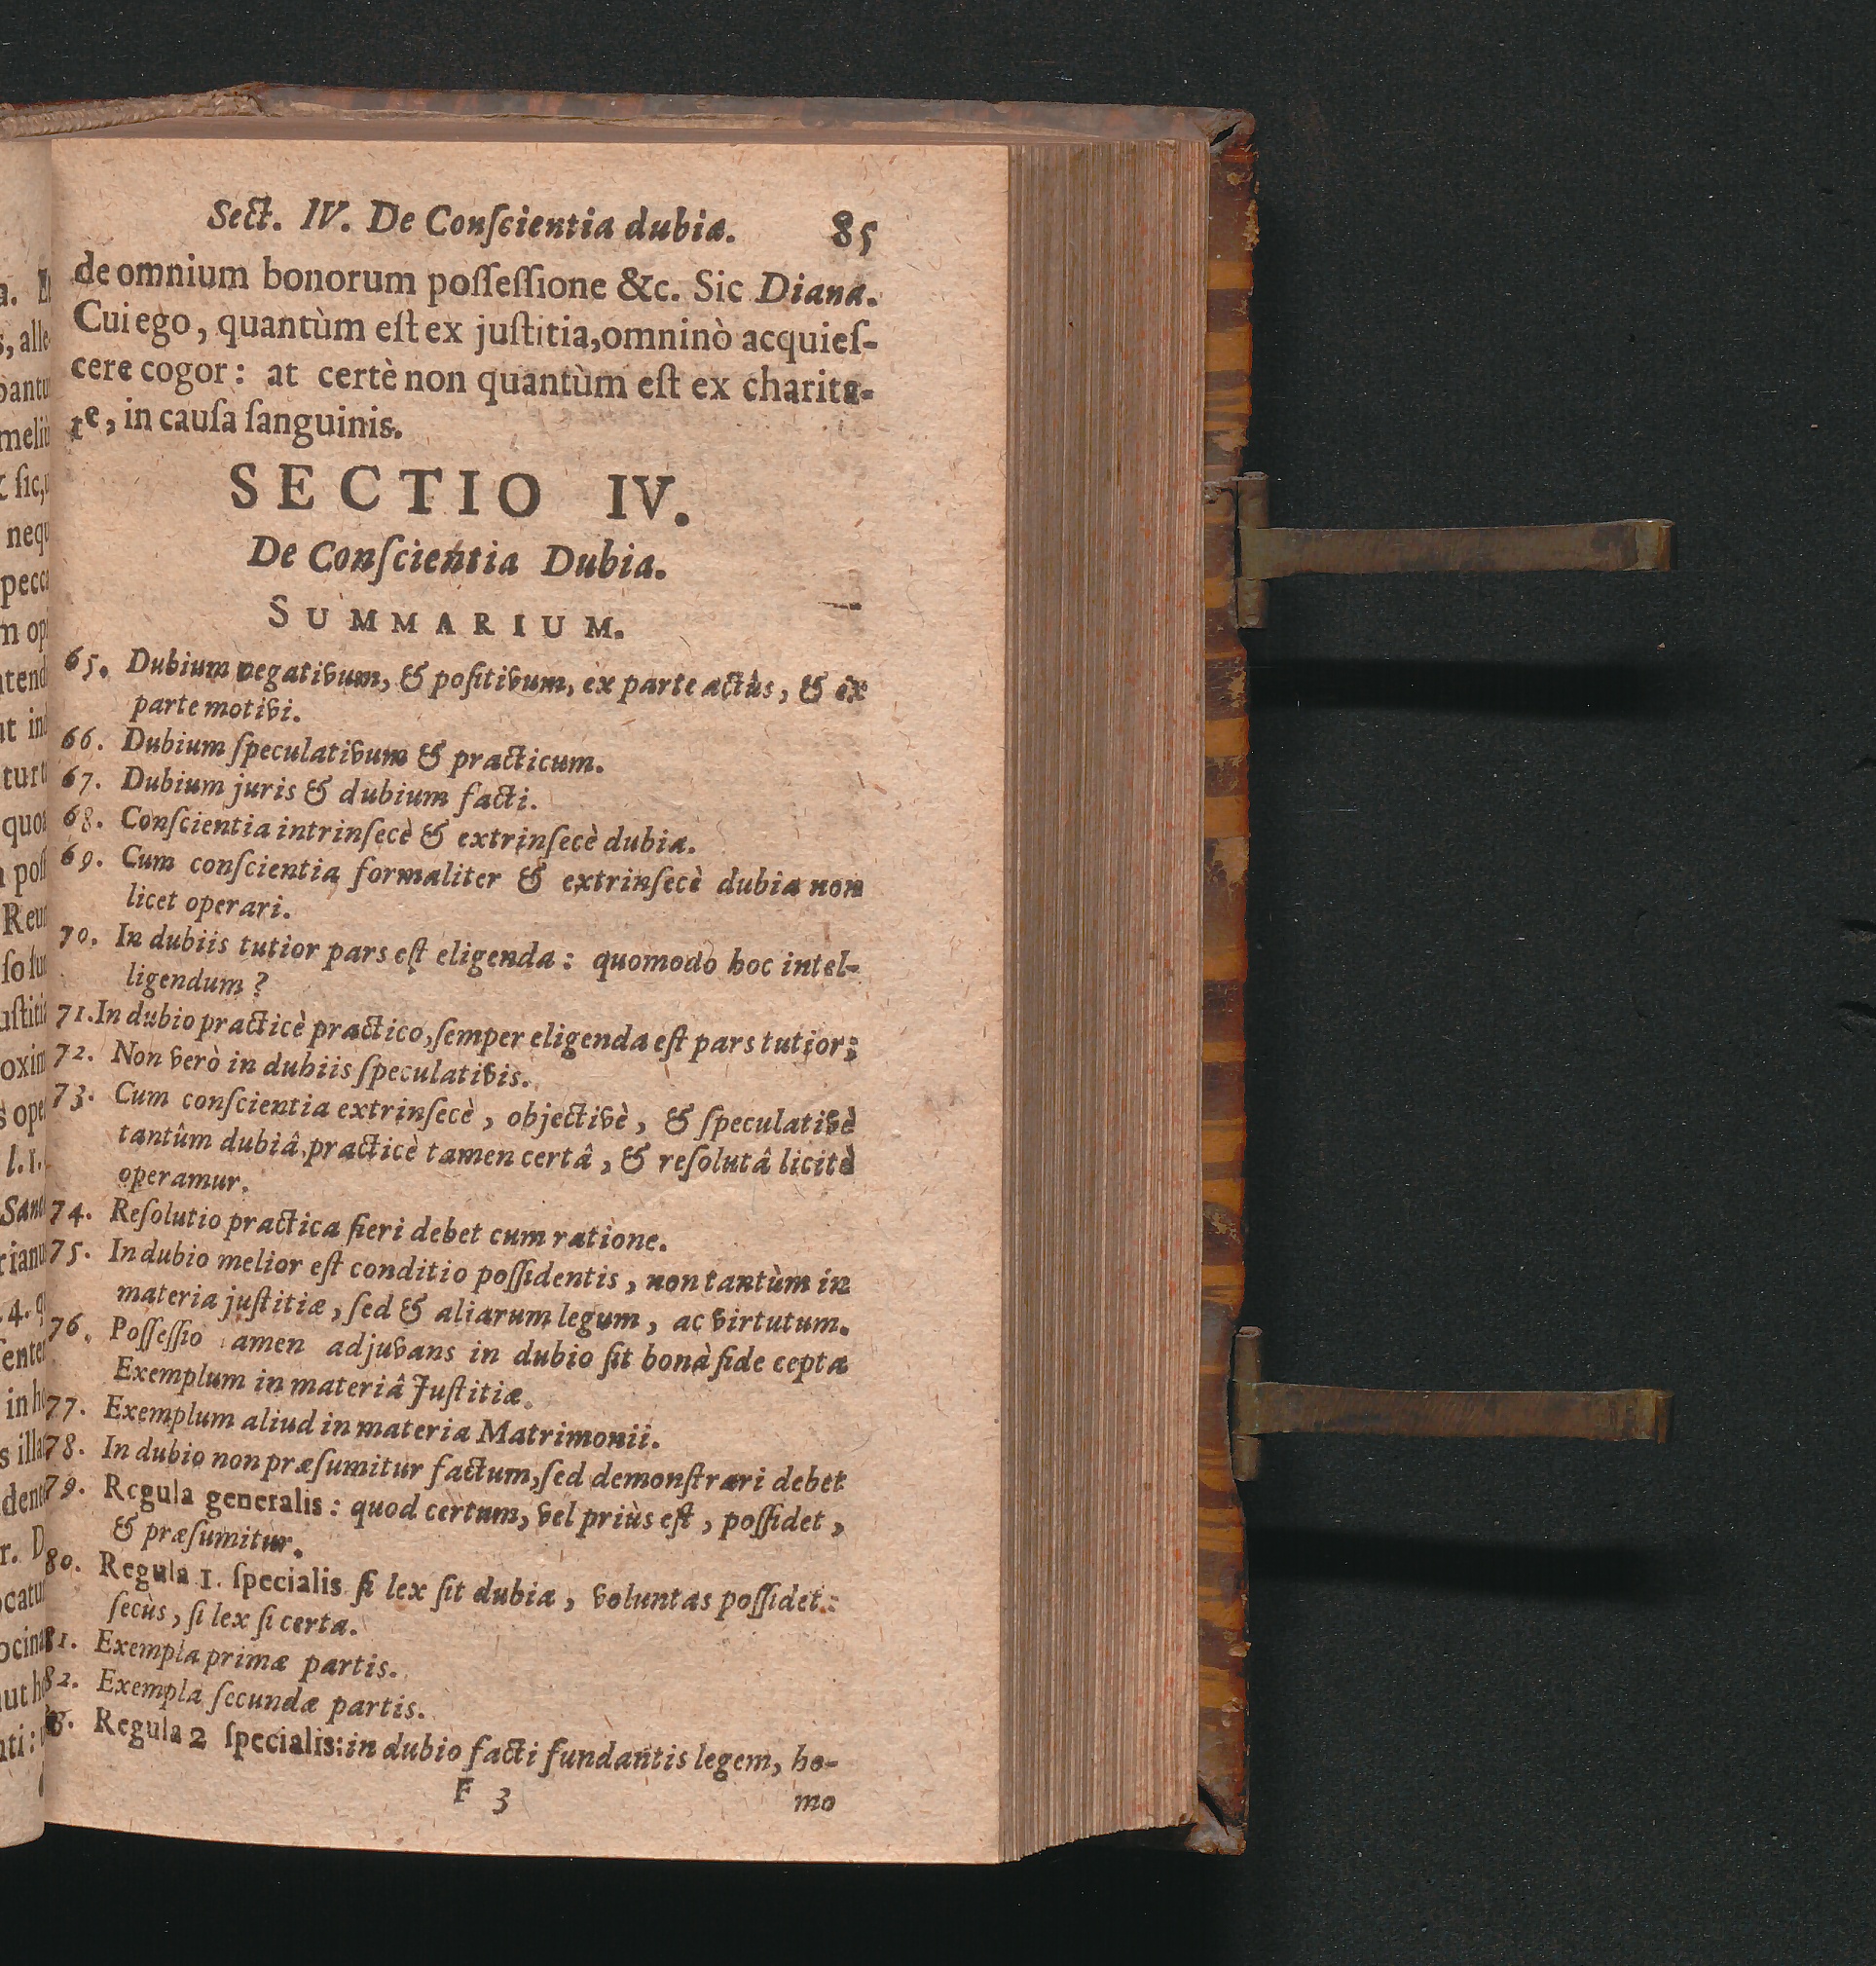 Sect. IV. De Conſcientia dubia. 85
de omnium bonorum poſſeſſione &c. Sic Diana.
Cui ego, quantùm eſt ex juſtitia, omninò acquieſ-
cere cogor: at certè non quantùm eſt ex charita-
te, in cauſa ſanguinis.
SECTIO IV.
De Conſcientia Dubia.
SUMMARIUM.
65. Dubium negativum, & poſitivum, ex parte actùs, & ex
parte motivi.
66. Dubium ſpeculativum & practicum.
67. Dubium juris & dubium facti.
68. Conſcientia intrinſecè & extrinſecè dubia.
69. Cum conſcientia formaliter & extrinſecè dubia non
licet operari.
70. In dubiis tutior pars eſt eligenda: quomodo hoc intel-
ligendum?
71. In dubio practicè practico, ſemper eligenda eſt pars tutior;
72. Non verò in dubiis ſpeculativis.
73. Cum conſcientia extrinſecè, objectivè, & ſpeculativè
tantûm dubiâ, practicè tamen certâ, & reſolutâ licitè
operamur.
74. Reſolutio practica fieri debet cum ratione.
75. In dubio melior eſt conditio poſſidentis, non tantùm in
materia juſtitiæ, ſed & aliarum legum, ac virtutum.
76. Poſſeſſio amen adjuvans in dubio ſit bonà fide cepta
Exemplum in materiâ Juſtitiæ.
77. Exemplum aliud in materia Matrimonii.
78. In dubio non præſumitur factum, ſed demonſtrari debet
79. Regula generalis: quod certum, vel priùs eſt, poſſidet,
& præſumitur.
80. Regula 1. ſpecialis ſi lex ſit dubia, voluntas poſſidet:
ſecùs, ſi lex ſi certa.
81. Exempla primæ partis.
82. Exempla ſecundæ partis.
Regula 2 ſpecialis: in dubio facti fundantis legem, ho-
F 3 mo